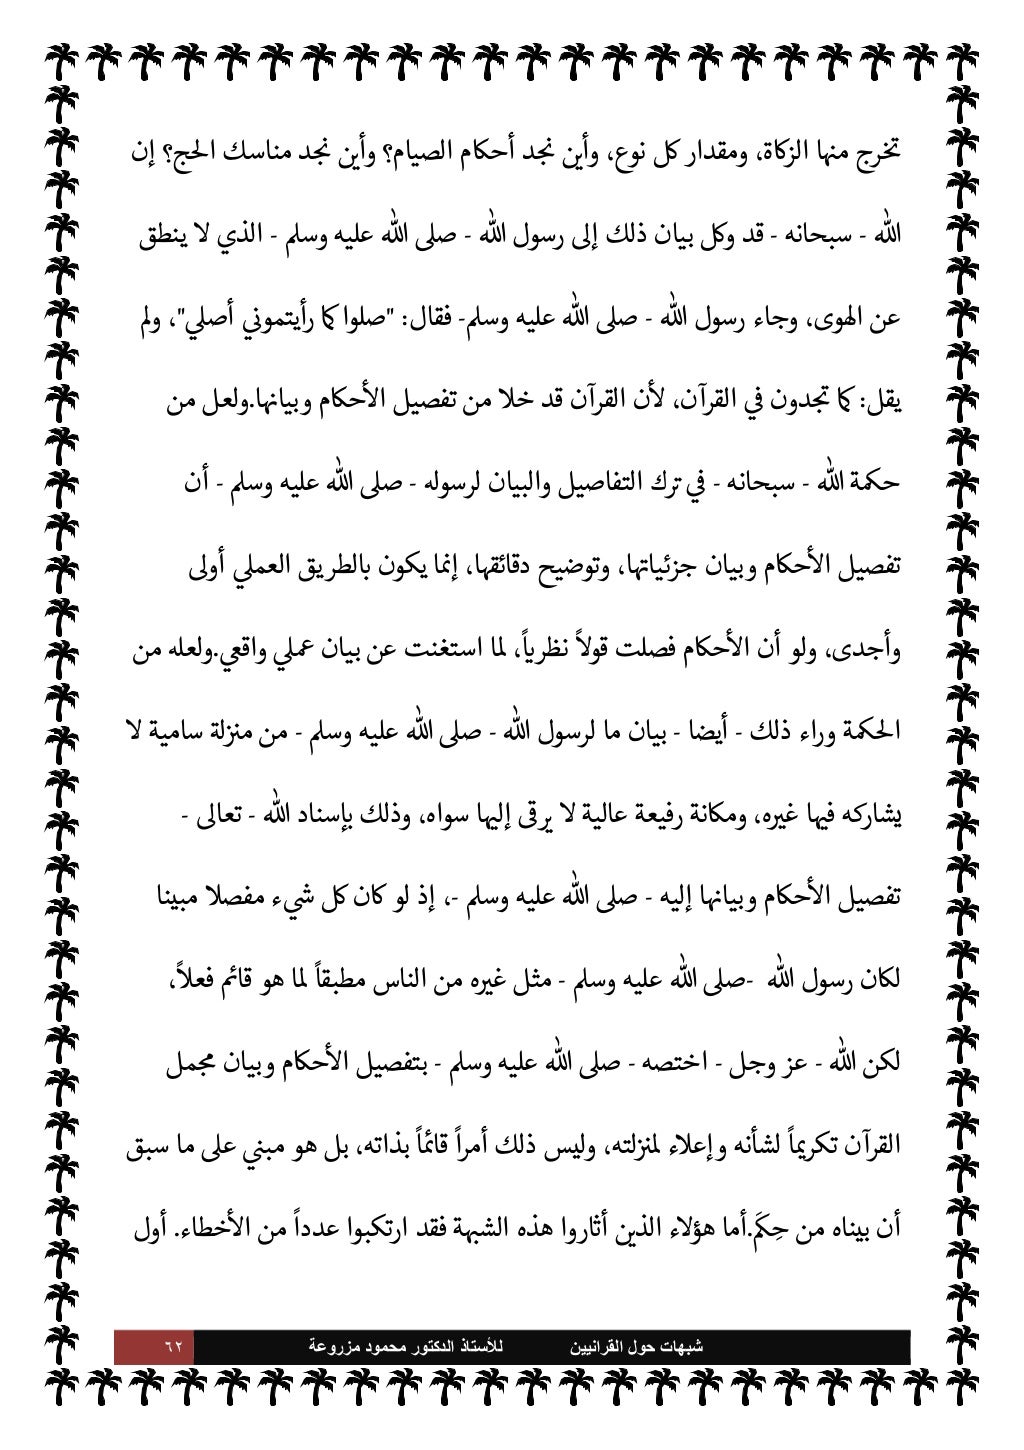 تخرج منها الزكاة، ومقدار كل نوع، وأين نجد أحكام الصيام؟ وأين نجد مناسك الحج؟ إن
الله - سبحانه - قد وكل بيان ذلك إلى رسول الله - صلى الله عليه وسلم - الذي لا ينطق
عن الهوى، وجاء رسول الله - صلى الله عليه وسلم- فقال: "صلوا كما رأيتموني أصلي"، ولم
يقل: كما تجدون في القرآن، لأن القرآن قد خلا من تفصيل الأحكام وبيانها.ولعل من
حكمة الله - سبحانه - في ترك التفاصيل والبيان لرسوله - صلى الله عليه وسلم - أن
تفصيل الأحكام وبيان جزئياتها، وتوضيح دقائقها، إنما يكون بالطريق العملي أولى
وأجدى، ولو أن الأحكام فصلت قولاً نظرياً، لما استغنت عن بيان عملي واقعي.ولعله من
الحكمة وراء ذلك - أيضا - بيان ما لرسول الله - صلى الله عليه وسلم - من منزلة سامية لا
يشاركه فيها غيره، ومكانة رفيعة عالية لا يرقى إليها سواه، وذلك بإسناد الله - تعالى -
تفصيل الأحكام وبيانها إليه - صلى الله عليه وسلم -، إذ لو كان كل شيء مفصلا مبينا
لكان رسول الله -صلى الله عليه وسلم - مثل غيره من الناس مطبقاً لما هو قائم فعلاً،
لكن الله - عز وجل - اختصه - صلى الله عليه وسلم - بتفصيل الأحكام وبيان مجمل
القرآن تكريماً لشأنه وإعلاء لمنزلته، وليس ذلك أمراً قائماً بذاته، بل هو مبني على ما سبق
أن بيناه من حِكَم.أما هؤلاء الذين أثاروا هذه الشبهة فقد ارتكبوا عدداً من الأخطاء. أول
شبهات حول القرانيين للأستاذ الدكتور محمود مزروعة ٦٢